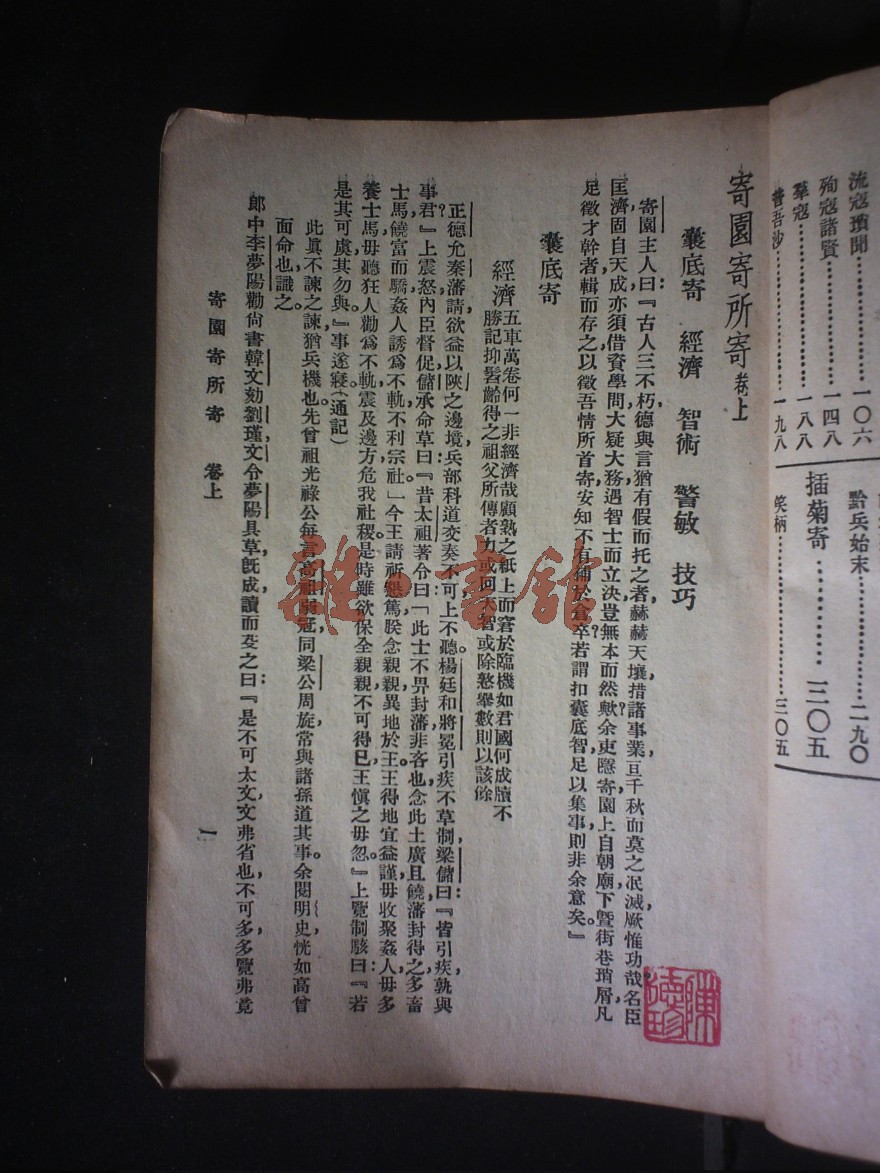 流寇瑣聞………………一〇六
殉寇諸賢………………一四八
羣寇………………一八八
昔吾沙………………一九八
黔兵始末………………二九〇
插菊寄………………三〇五
笑柄………………三〇五
寄園寄所寄 卷上
囊底寄 經濟 智術 警敏 技巧
寄園主人曰：『古人三不朽，德與言猶有假而托之者，赫赫天壤，措諸事業，亘千秋而莫之泯滅，厥惟功哉！名臣
匡濟，固自天成，亦須借資學問，大疑大務，遇智士而立決，豈無本而然歟？余東隱寄園，上自朝廟，下暨街巷瑣屑，凡
足徵才幹者，輯而存之，以徵吾情所首寄，安知不有補於倉卒？若謂扣囊底智，足以集事，則非余意矣。』
囊底寄
經濟 五車萬卷，何一非經濟哉？顧熟之紙上，而窘於臨機，如君國何？成牘不
勝記，抑髫齡得之祖父所傳者，力或回天，智或除憝，舉數則以該餘
正德允秦藩請，欲益以陝之邊境，兵部科道交奏不可，上不聽。楊廷和將冕引疾不草制，梁儲曰：『皆引疾，孰與
事君？』上震怒，內臣督促，儲承命草曰：『昔太祖著令曰：「此土不畀封藩，非吝也，念此土廣且饒，藩封得之，多畜
士馬，饒富而驕，姦人誘爲不軌，不利宗社。」今王請祈懇篤，朕念親親，異地於王，王得地宜益謹，毋收聚姦人，毋多
養士馬，毋聽狂人勸爲不軌，震及邊方，危我社稷，是時雖欲保全親親，不可得已，王愼之毋忽。』上覽制駭曰：『若
是其可虞，其勿與。』事遂寢。（通記）
此眞不諫之諫，猶兵機也。先曾祖光祿公每言高祖 冠，同梁公周旋，常與諸孫道其事。余閱明史，恍如高曾
面命也，識之。
郎中李夢陽勸尙書韓文劾劉瑾，文令夢陽具草，旣成，讀而芟之曰：『是不可太文，文弗省也，不可多，多覽弗竟
寄園寄所寄 卷上
一
雜·書館
陳